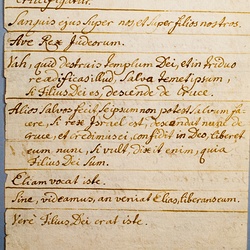 Crucifigatur.
Sanguis ejus super nos, et super filios nostros.
Ave Rex Judeorum.
Vah, qui destruis templum Dei, et in triduo
reædificas illud, salva temetipsum,
si Filius Dei es, descende de Cruce.
Alios salvos fecit seipsum non potest salvum fa-
cere, si rex Israel est, descendat nunc de
Cruce, et credimus ei, confidit in Deo, liberet
eum nunc, si vult, dixit enim, quia
Filius Dei sum.
Eliam vocat iste.
Sine, videamus, an veniat Elias, liberans eum.
Verè Filius Dei erat iste.